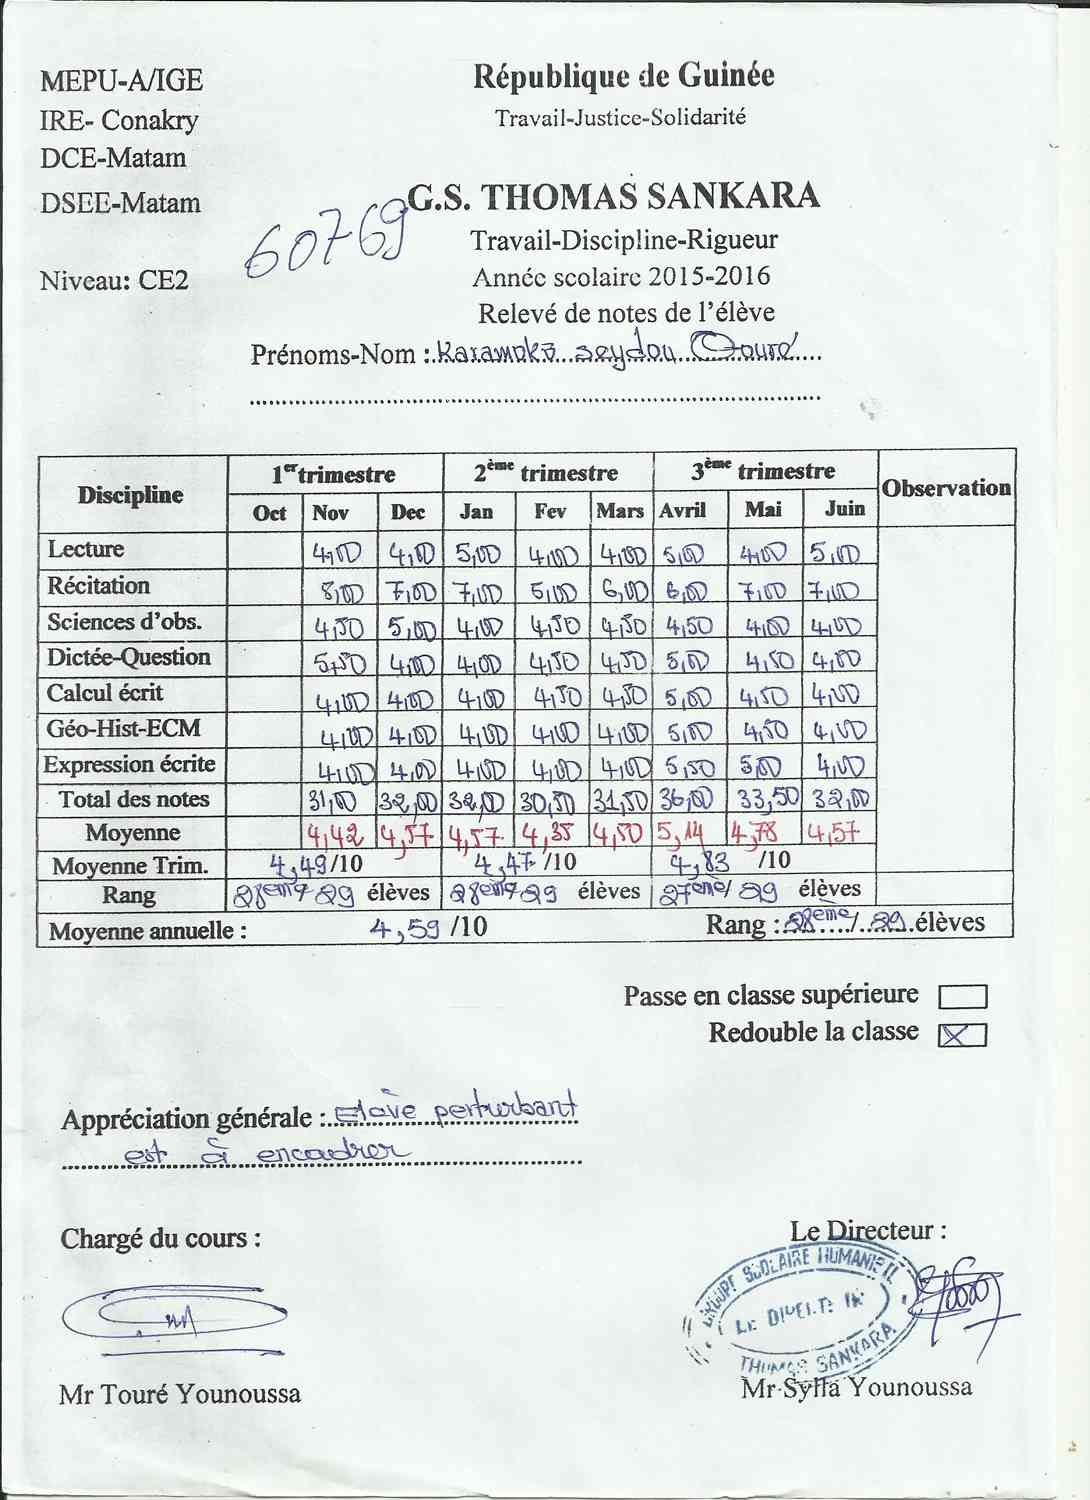 MEPU-A/IGE
République de Guinée
IRE- Conakry
Travail-Justice-Solidarité
DCE-Matam
DSEE-Matam
G.S. THOMAS SANKARA
60769
Travail-Discipline-Rigueur
Niveau: CE2
Année scolaire 2015-2016
Relevé de notes de l'élève
Prénoms-Nom : Karamoko seydou Touré
Discipline 1er trimestre 2ème trimestre 3ème trimestre Observation
Oct Nov Dec Jan Fev Mars Avril Mai Juin
Lecture 4,00 4,00 5,00 4,00 4,00 5,00 4,00 5,00
Récitation 8,00 7,00 7,00 5,00 6,00 6,00 7,00 7,00
Sciences d'obs. 4,50 5,00 4,00 4,50 4,50 4,50 4,00 4,00
Dictée-Question 5,50 4,00 4,00 4,50 4,50 5,00 4,50 4,00
Calcul écrit 4,00 4,00 4,00 4,50 4,50 5,00 4,50 4,00
Géo-Hist-ECM 4,00 4,00 4,00 4,00 4,00 5,00 4,50 4,00
Expression écrite 4,00 4,00 4,00 4,00 4,00 5,50 5,00 4,00
Total des notes 31,00 32,00 32,00 30,50 31,50 36,00 33,50 32,00
Moyenne 4,42 4,57 4,57 4,35 4,50 5,14 4,78 4,57
Moyenne Trim. 4,49/10 4,47/10 4,83 /10
Rang 28ème/29 élèves 28ème/29 élèves 27ème/29 élèves
Moyenne annuelle : 4,59/10 Rang : 28ème/29 élèves
Passe en classe supérieure
Redouble la classe X
Appréciation générale : Elève perturbant
est à encadrer
Chargé du cours :
Le Directeur :
GROUPE SCOLAIRE
LE DIRECTEUR
THOMAS SANKARA
Mr Touré Younoussa
Mr Sylla Younoussa